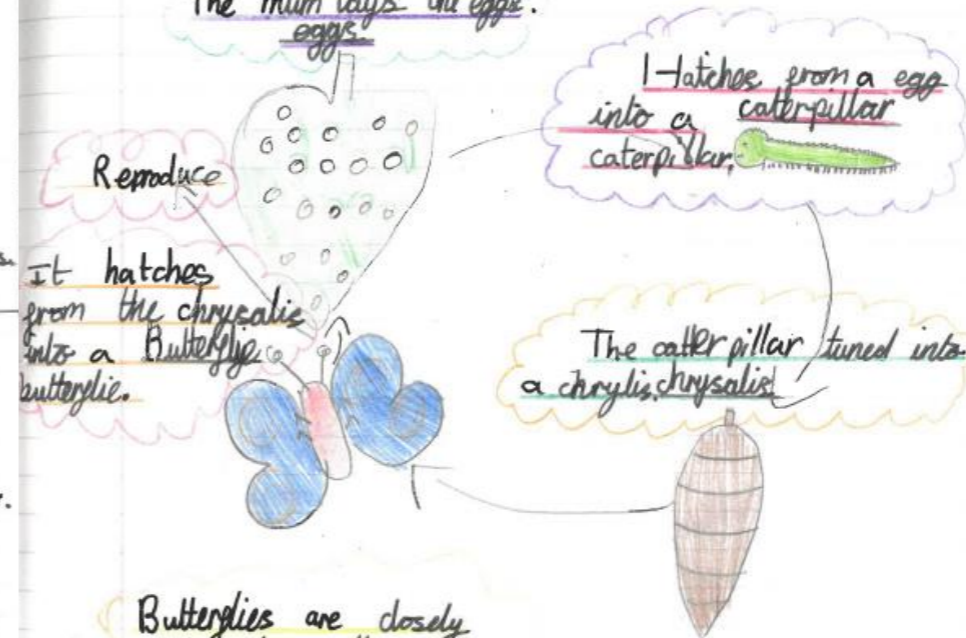 The mum lays the eggs.
eggs.
Hatches from a egg
into a caterpillar
caterpillar.
Reproduce
It hatches
from the chrysalis
into a Butterflie
butterflie.
The catter pillar tuned into
a chrylis. chrysalis
Butterflies are closely